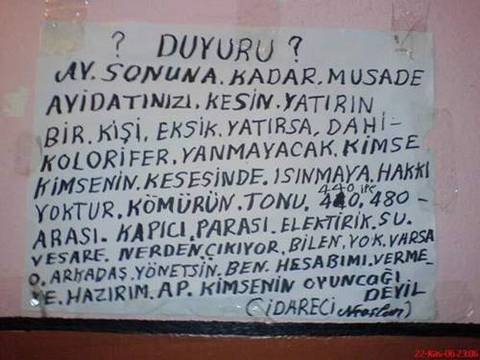 ? DUYURU ?
AY. SONUNA. KADAR. MUSADE
AYIDATINIZI. KESİN. YATIRIN
BİR. KİŞİ. EKSİK. YATIRSA. DAHİ-
KOLORİFER. YANMAYACAK. KİMSE
KİMSENİN. KESEŞİNDE. ISINMAYA. HAKKI
YOKTUR. KÖMÜRÜN. TONU. 440 ile 480-
ARASI. KAPICI. PARASI. ELEKTİRİK. SU.
VESARE. NERDEN. ÇIKIYOR. BİLEN. YOK. VARSA
O. ARKADAŞ. YÖNETSİN. BEN. HESABIMI. VERME-
YE. HAZIRIM. AP. KİMSENİN OYUNCAĞI
DEYİL
(İDARECİ
22-Kas-06 23:06